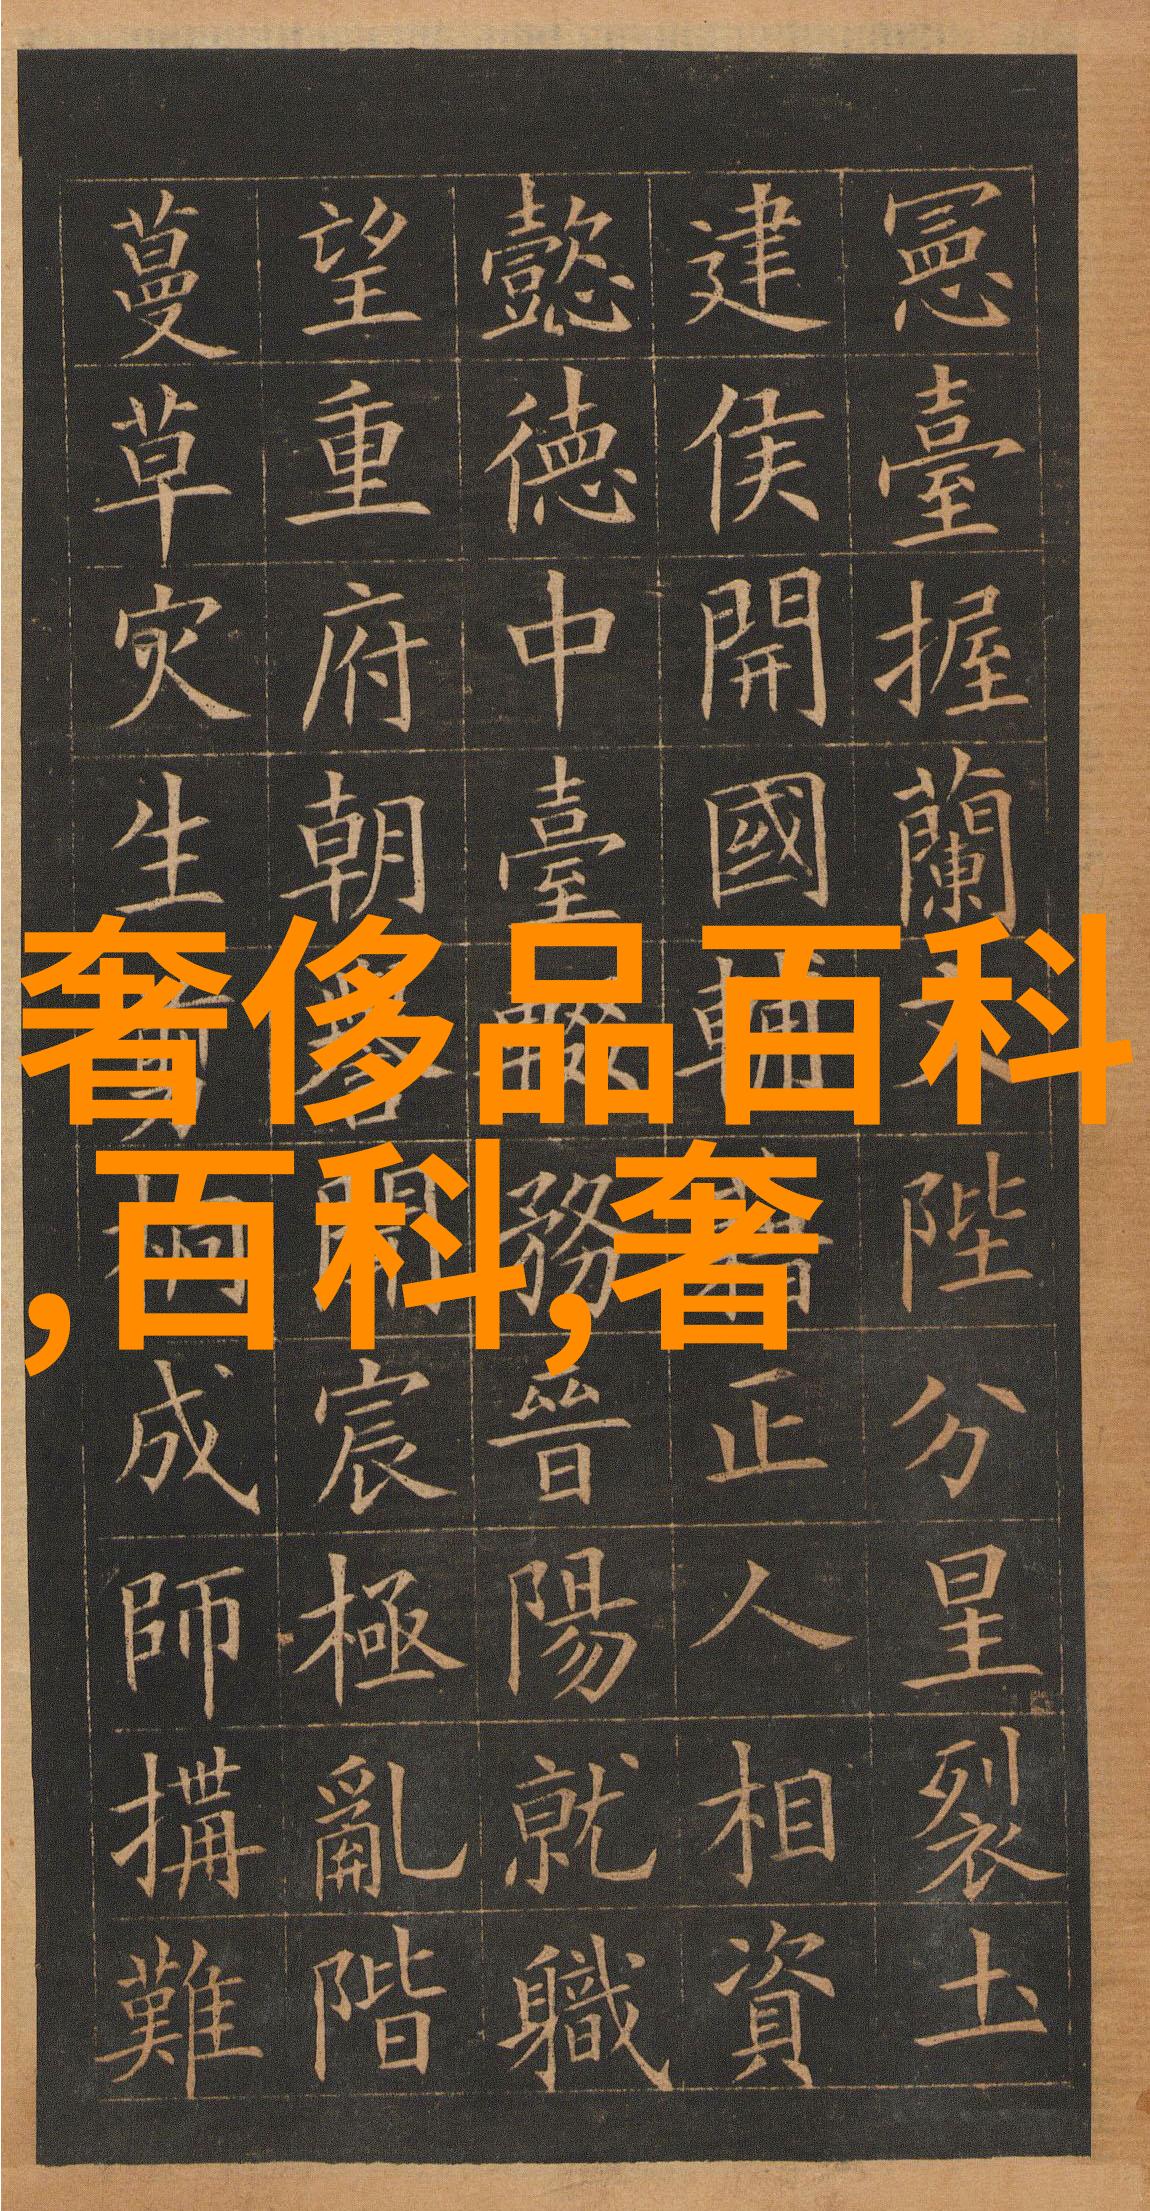 憲臺握蘭文陛分星裂土
建侯開國輔藉正人相資
懿德中臺務晉陽就職
望重府朝譽聞宸極亂階
蔓草灾生成師搆難
奢侈品百科
,百科,奢